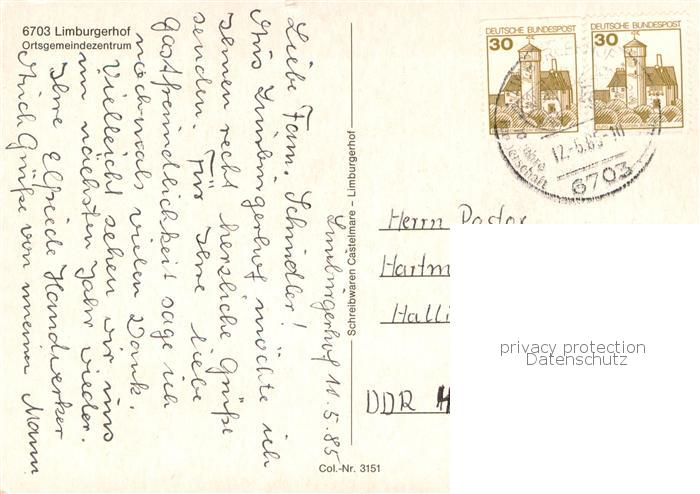 6703 Limburgerhof
Ortsgemeindezentrum
Limburgerhof 11.5.85
Liebe Fam. Schindler!
Aus Limburgerhof möchte ich
Ihnen recht herzliche Grüße
senden. Für Ihre liebe
Gastfreundlichkeit sage ich
nochmals vielen Dank.
Vielleicht sehen wir uns
im nächsten Jahr wieder.
Ihre Elfriede Handwerker
Auch Grüße von meinem Mann
Schreibwaren Castelmare – Limburgerhof
Col.-Nr. 3151
DEUTSCHE BUNDESPOST
30
DEUTSCHE BUNDESPOST
30
12.-5.85
6703
Herrn Pastor
Hartm
Halli
DDR
privacy protection
Datenschutz